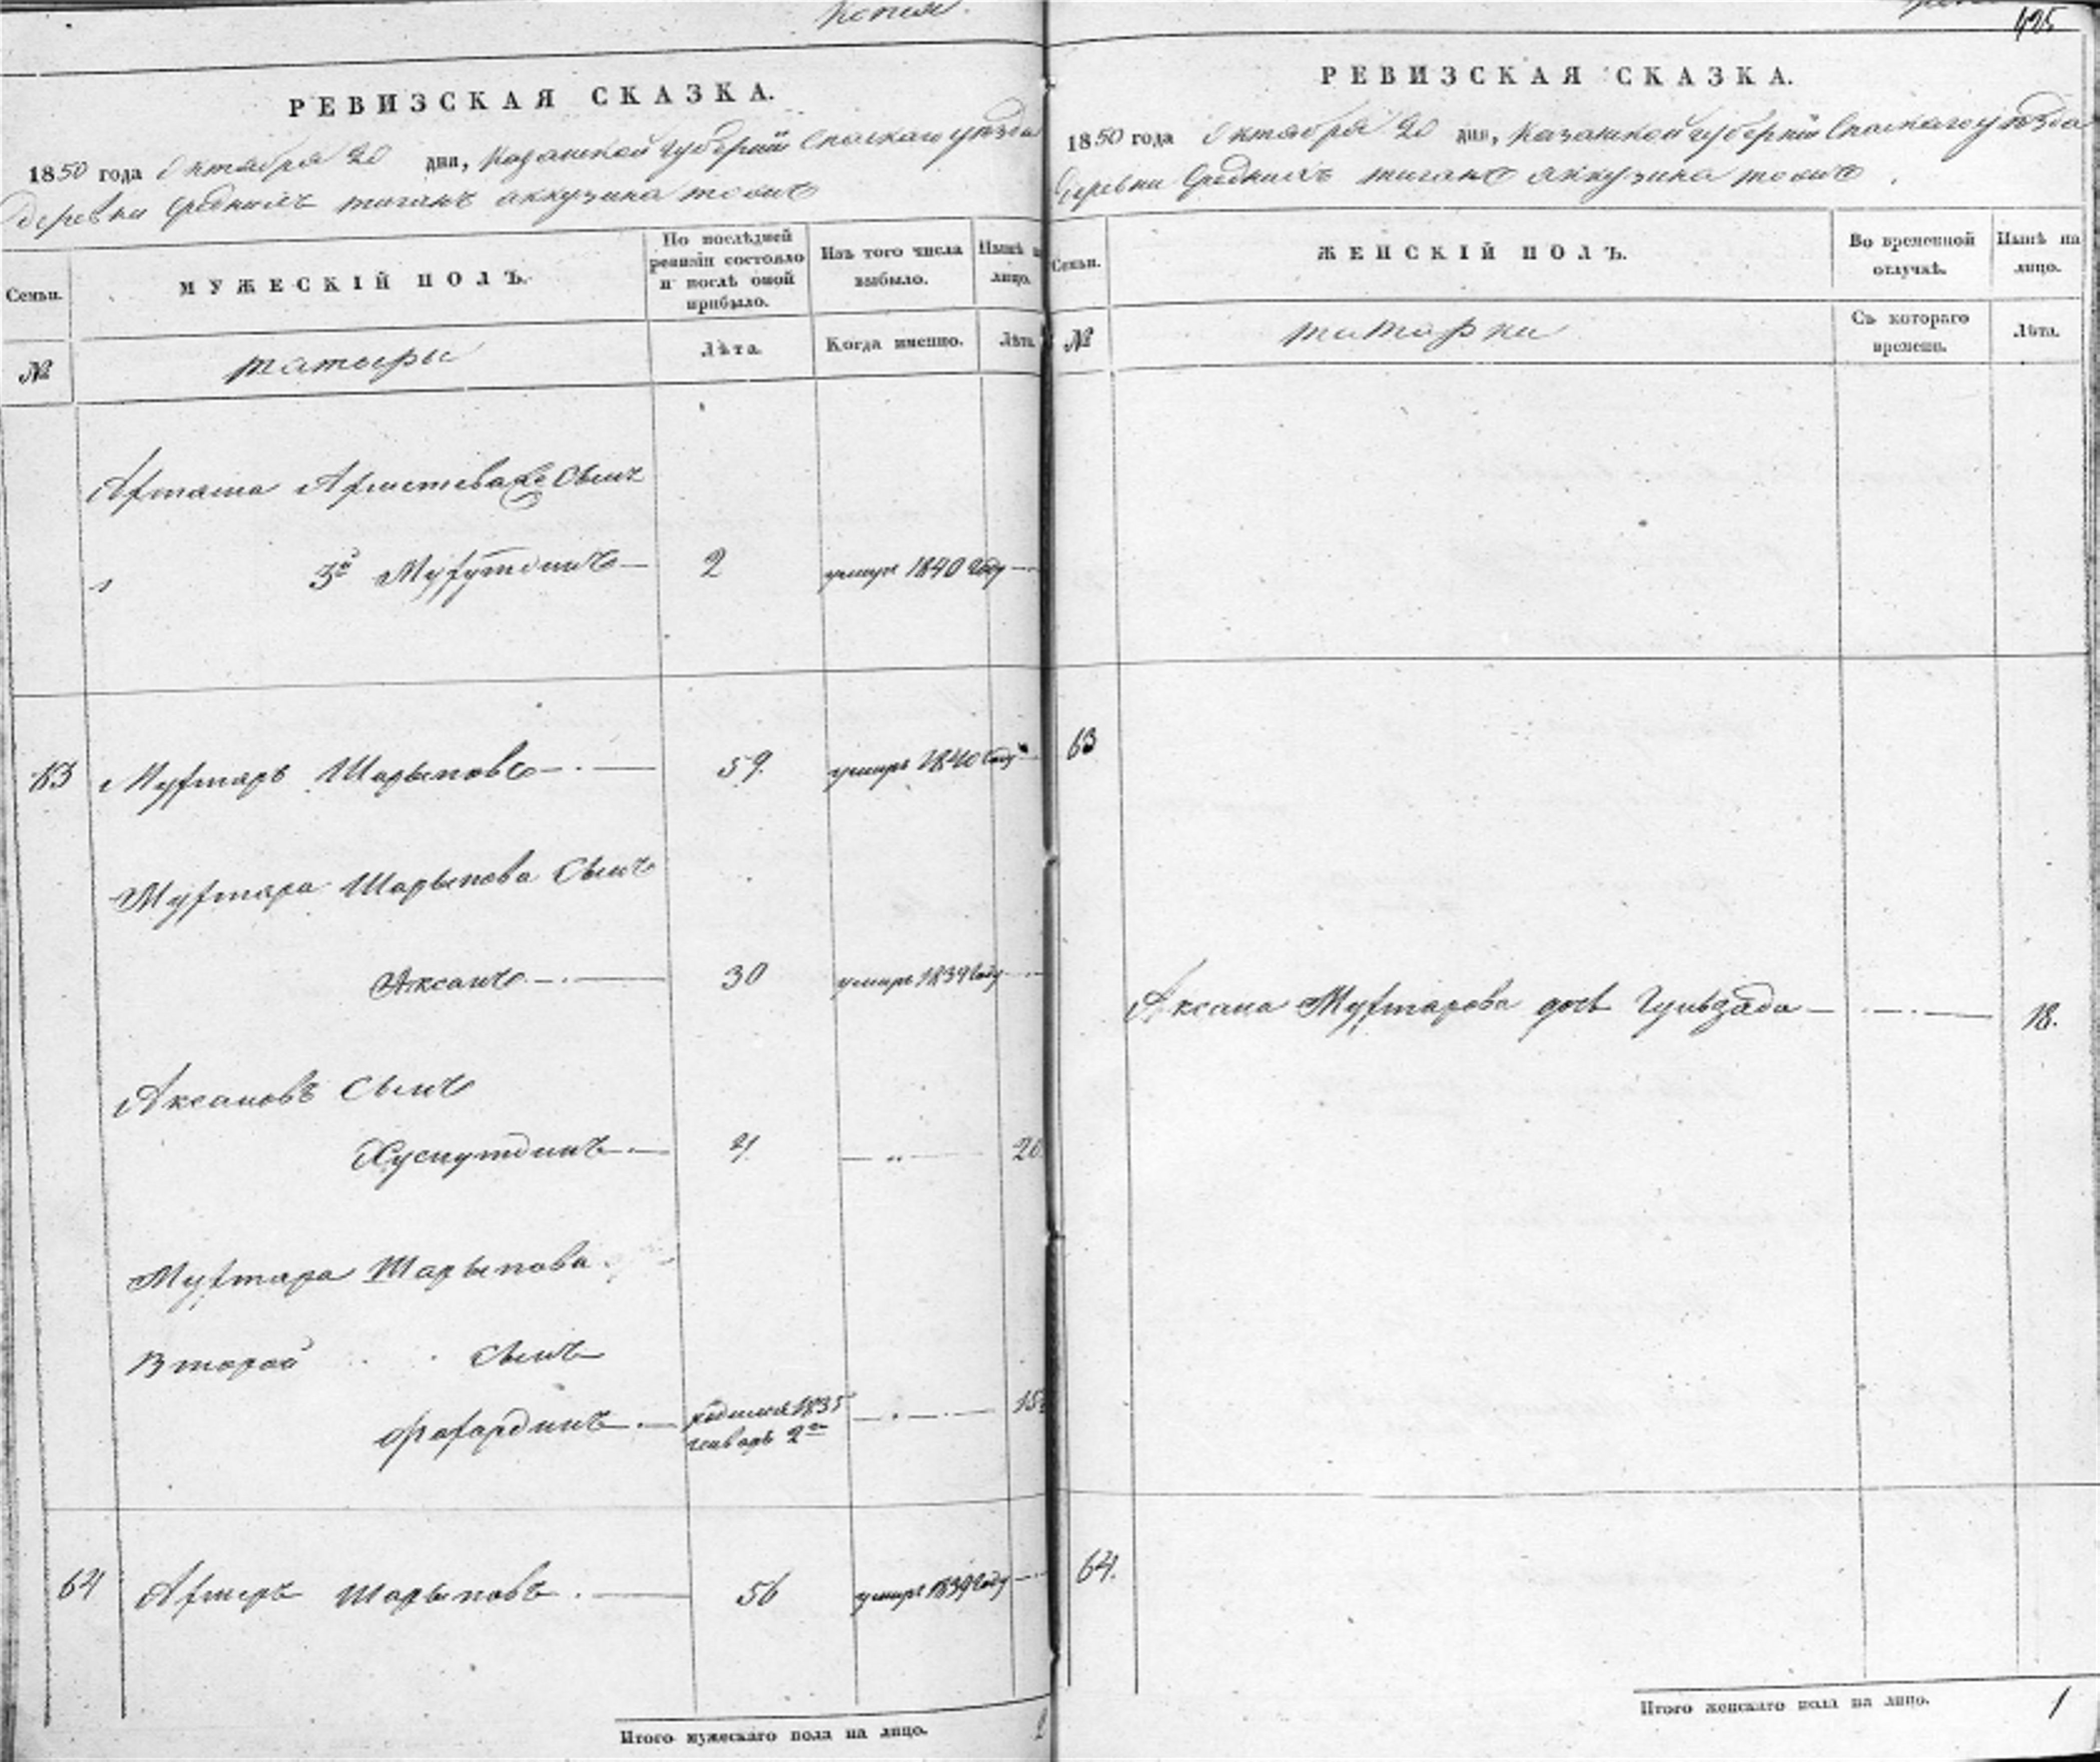 Копия.
РЕВИЗСКАЯ СКАЗКА.
1850 года Октября 20 дня, Казанской Губернии Спаскаго уѣзда
деревни Среднихъ тиганъ аккузина тожъ
Семьи. МУЖЕСКІЙ ПОЛЪ. По послѣдней ревизіи состояло и послѣ оной прибыло. Изъ того числа выбыло. Нынѣ на лицо.
№ татары Лѣта. Когда именно. Лѣта.
Арстева сынъ
3й 2 умеръ 1840 году
63 Мухтаръ Шарыповъ 59. умеръ 1840 году
Мухтара Шарыпова Сынъ
Аксанъ 30 умеръ 1839 году
Аксановъ Сынъ
Хуснутдинъ 4. 20
Мухтара Шарыпова
Второй сынъ
Фахардинъ родился 1835 15
генварь 2го
64 Шарыповъ 56 умеръ 1839 году
Итого мужескаго пола на лицо. 2
425
РЕВИЗСКАЯ СКАЗКА.
1850 года Октября 20 дня, Казанской губернии Спаскаго уѣзда
Деревни Среднихъ тиганъ аккузина тожъ.
Семьи. ЖЕНСКІЙ ПОЛЪ. Во временной отлучкѣ. Нынѣ на лицо.
№ татарки Съ котораго времени. Лѣта.
63
Аксана Мухтарова дочь Гульзада 18.
64.
Итого женскаго пола на лицо. 1